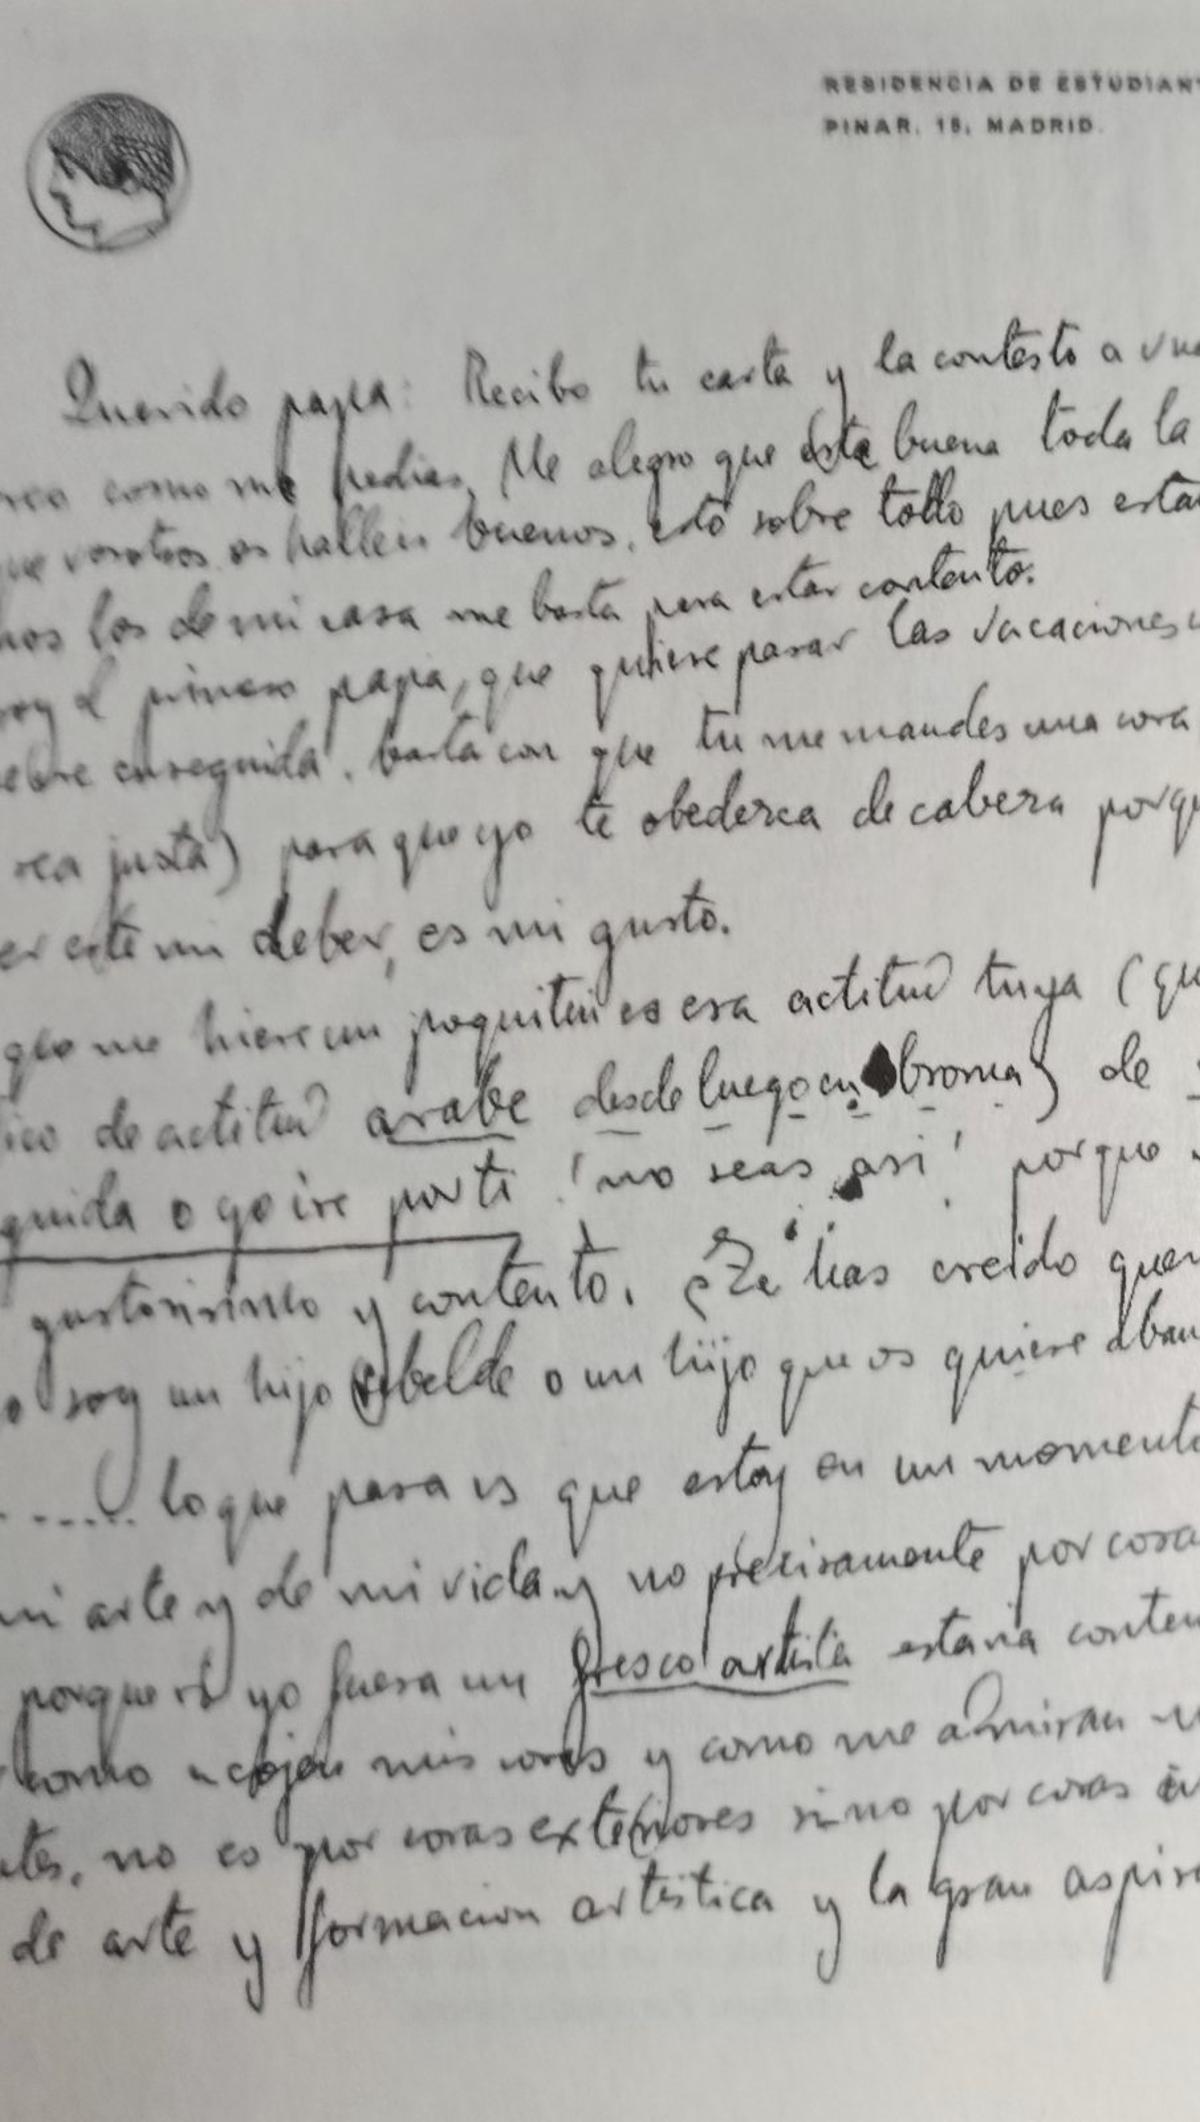 RESIDENCIA DE ESTUDIAN
PINAR, 15, MADRID.
Querido papa: Recibo tu carta y la contesto a vue
como me pedias. Me alegro que este buena toda la
ue vosotros os halleis buenos, esto sobre todo pues estan
los de mi casa me basta para estar contento.
soy el primero papa, que quiere pasar las vacaciones
enseguida, basta con que tu me mandes una cosa
sea justa) para que yo te obedezca de cabeza porqu
er este mi deber, es mi gusto.
que me hiere un poquitin es esa actitud tuya (que
ico de actitud arabe desde luego en broma) de
guida o yo ire por ti ¡no seas asi! porque
gustosisimo y contento. ¿Te has creido quer
o soy un hijo rebelde o un hijo que os quiere aban
..... lo que pasa es que estoy en un momento
mi arte y de mi vida y no precisamente por cosa
porque si yo fuera un fresco artista estaria conten
como acojen mis cosas y como me admiran
tes, no es por cosas exteriores sino por cosas in
de arte y formacion artistica y la gran aspira